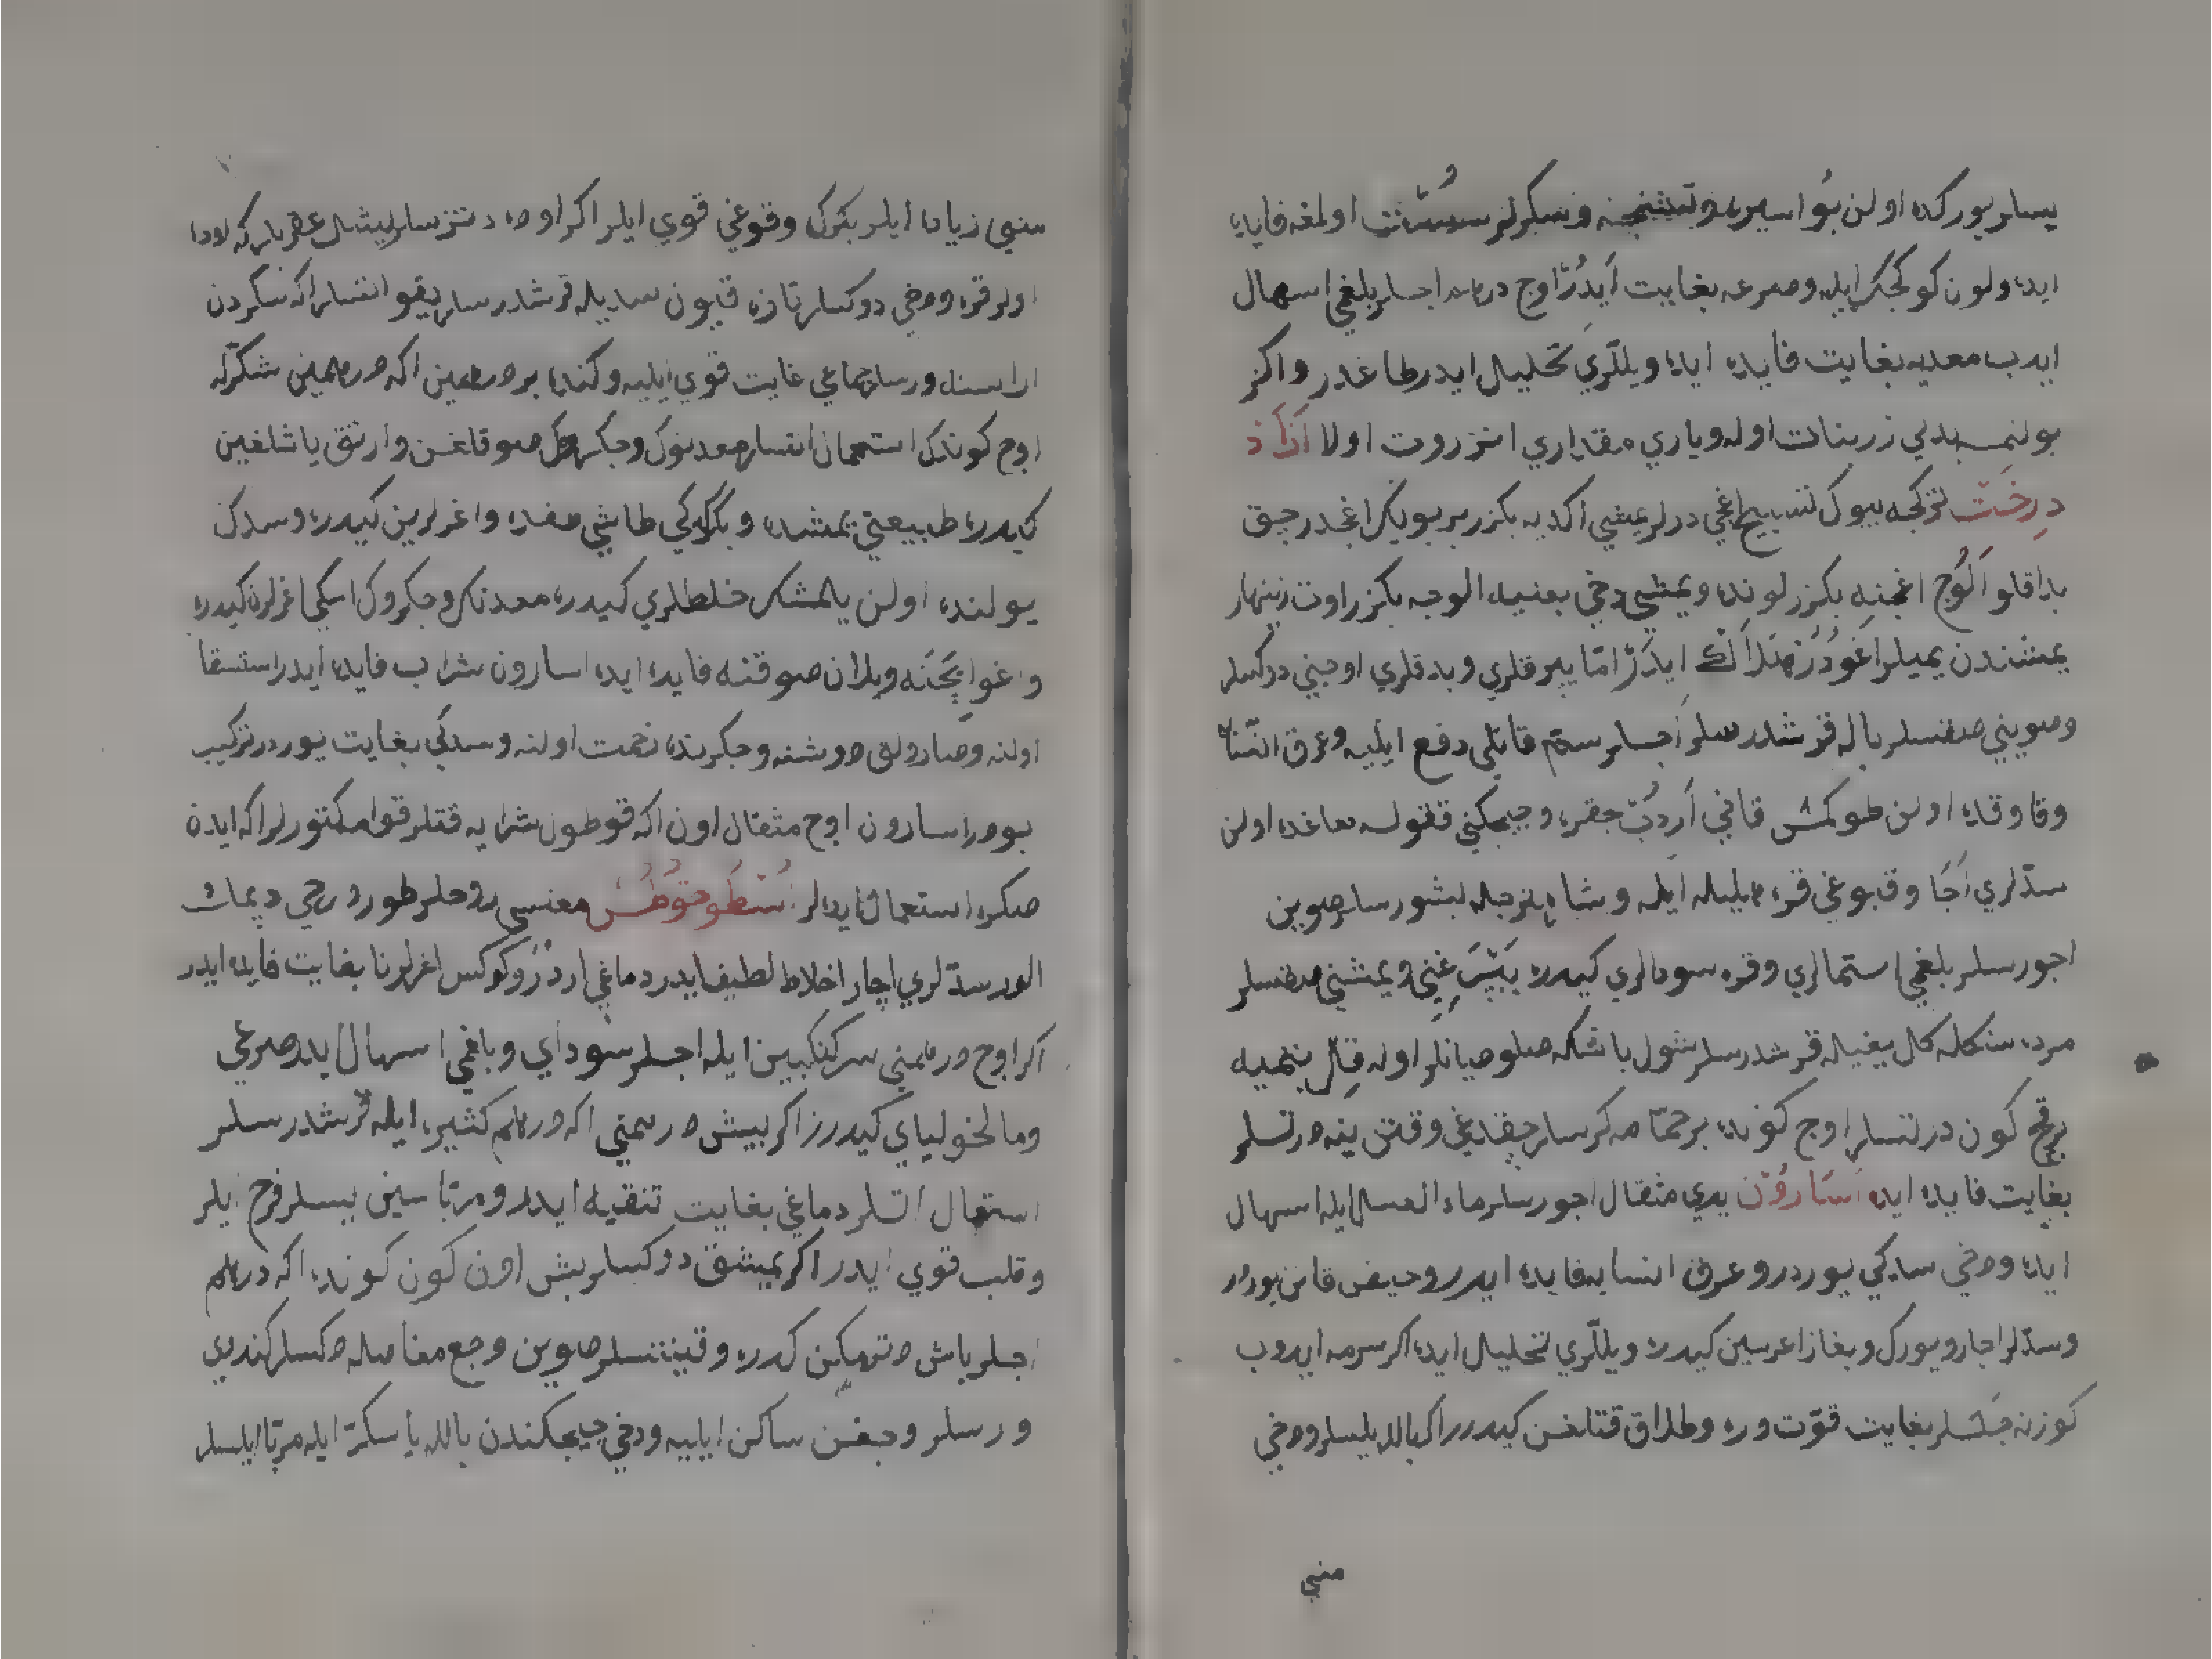 يسلر يورکده اولن بواسيره و تشنجنه و سکرلر سست اولمغه فايده
ايده ولون کوکجک ايليه و صرعه بغايت ايدر اوج درهم اجسلر بلغمي اسهال
ايدب معديه بغايت فايده ايده و يللري تحليل ايدر طاغدر واکر
بولنمسه بدلي زرنبات اوله و ياري مقداري انزروت اولا ازاذ
درخت ترکجه بيوک تسبيح اغجي درلر يمشي اکديه بکزر بر بويک اغجدر چق
بداقلو الوج اغجنه بکزر لونده و يمشي دخي بعنيه الوجه بکزر اوت زينهار
يمشندن يميلر اغودر هلاک ايدر اما يپرقلري و بدقلري اوجني دوکسلر
وصويني صقسلر باله قرشدرسلر اجسلر سم قاتلي دفع ايليه و عرق النسا
وقاوقده اولن طوکمش قاني اردب جقره و چيچکني قوقولسه دماغده اولن
سدلري اجا و قبوغي قره هليله ايله و شاهتره جله بشورسلر صوين
اجورسلر بلغمي استمالري و قره سودالري کيدره يپرغني و يمشني صقسلر
مرده سنکله کل يغيله قرشدرسلر شول باشکه صلو صيانلر اوله قال بتميه
برقچ کون درتسلر اوج کونده بر حمامه کرسلر چقدغي وقتن ينه درتسلر
بغايت فايده ايده اسارون يدي مثقال اجورسلر ماء العسل ايله اسهال
ايده ودخي سدکي يوردر و عرق النسايه فايده ايدر و حيض قانن يورده
وسدلر اجار و يورک و بغاز اغرسين کيدره و يللري تحليل ايده اکر سرمه ايدوب
کوزنه چکسلر بغايت قوت وره و طلاق قتلغن کيدرر اکر بالله يسلر ودخي
مني
مني زياده ايلر بکرک وقوغني قوي ايلر اکر اوده دتزسلر يشل عقربلرکه اوده
اولر قره ودخي دوکسلر تازه قيون سديله قرشدرسلر يقو اتسلر اکه سکردن
اراسنه ورسلر جماعي غايت قوي ايليه و کنده بر درهمين اکه درهمين شکرله
اوج کوندک استعمال اتسلر معدنوک و جکرک صوقلغن وارتق ياشلغين
کيدره طبيعتي يمشده و بکرکي طاشي صفده و اغرلرين کيدره و سدک
يولنده اولن يلمشک خلطلري کيدره معدنک و جکروک اسکي اغرلرن کيدره
و اغو ايچنه و يلان صوقنه فايده ايده اسارون شراب فايده ايدر استسقا
اولنه و صارولق دوشنه و جکرنده زحمت اولنه و سدکي بغايت يوردر ترکيب
بودر اسارون اوج مثقال اون اکه قوطول شرابه قتلر قوا مکتورلر اکه ايدن
صکره استعمال ايدلر اسطوخودس معنسي روحلر طوردرجي ديمک
الور سدلري اچار اخلاط لطيف ايدر دماغي اردر و کوکس اغرلرنا بغايت فايده ايدر
اکر اوج درهميني سرکنکبين ايله اجسلر سوداي و بلغمي اسهال ايدر صرعي
ومالخولياي کيدرر اکر بيش درهميني اکه درهم کثيره ايله قرشدرسلر
استعمال اتسلر دماغي بغايت تنقيه ايدر و مرباسين يسلر فرح ايلر
و قلب قوي ايدر اکر يمشق دوکسلر بش اون کون کونده اکه درهم
اجسلر باش دترمکين کدره و قينتسلر صوين وجع مفاصله دکسلر کنددي
ورسلر وجغن ساکن ايليه ودخي چيچکندن بالله يا سکر ايله مربا ايلسلر